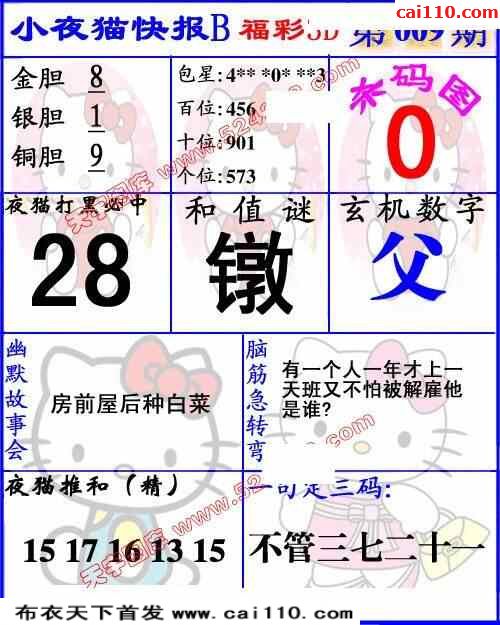 cai110.com
小夜猫快报B 福彩3D 第009期
金胆 8
银胆 1
铜胆 9
包星:4** *0* **3
百位:456
十位:901
个位:573
杀码图
0
夜猫打黑必中
28
和值谜
镦
玄机数字
父
幽默故事会
房前屋后种白菜
脑筋急转弯
有一个人一年才上一
天班又不怕被解雇他
是谁?
夜猫推和(精)
15 17 16 13 15
一句定三码:
不管三七二十一
天字图库 www.52
天字图库 www.52
布衣天下首发 www.cai110.com